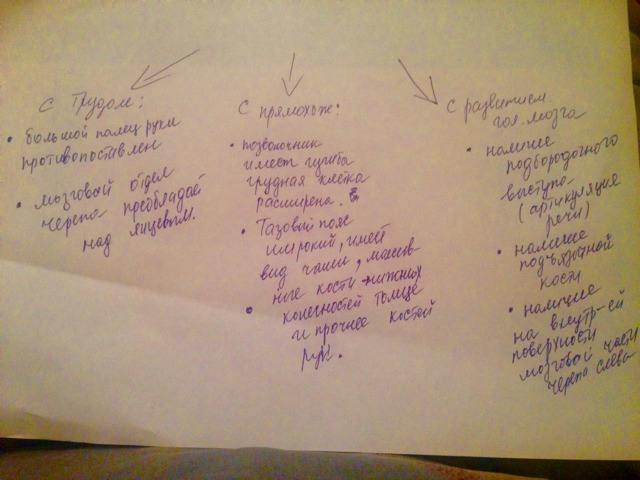 С трудом:
• большой палец руки
противопоставлен
• мозговой отдел
черепа преобладает
над лицевым.
С прямохож:
• позвоночник
имеет изгиба
грудная клетка
расширена.
• Тазовый пояс
широкий, имеет
вид чаши, массив-
ные кости нижних
• конечностей толще
и прочнее костей
рук.
С развитием
гол. мозга
• наличие
подбородочного
выступа
(артикуляция
речи)
• наличие
подъязычной
кости
• наличие
на внутр-ей
поверхности
мозговой части
черепа слева